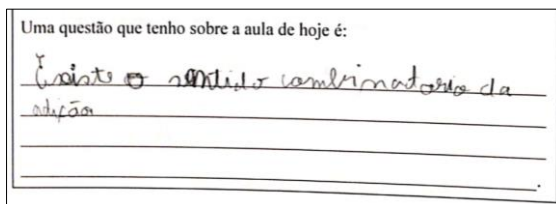 Uma questão que tenho sobre a aula de hoje é:
Existe o sentido combinatorio da
adição